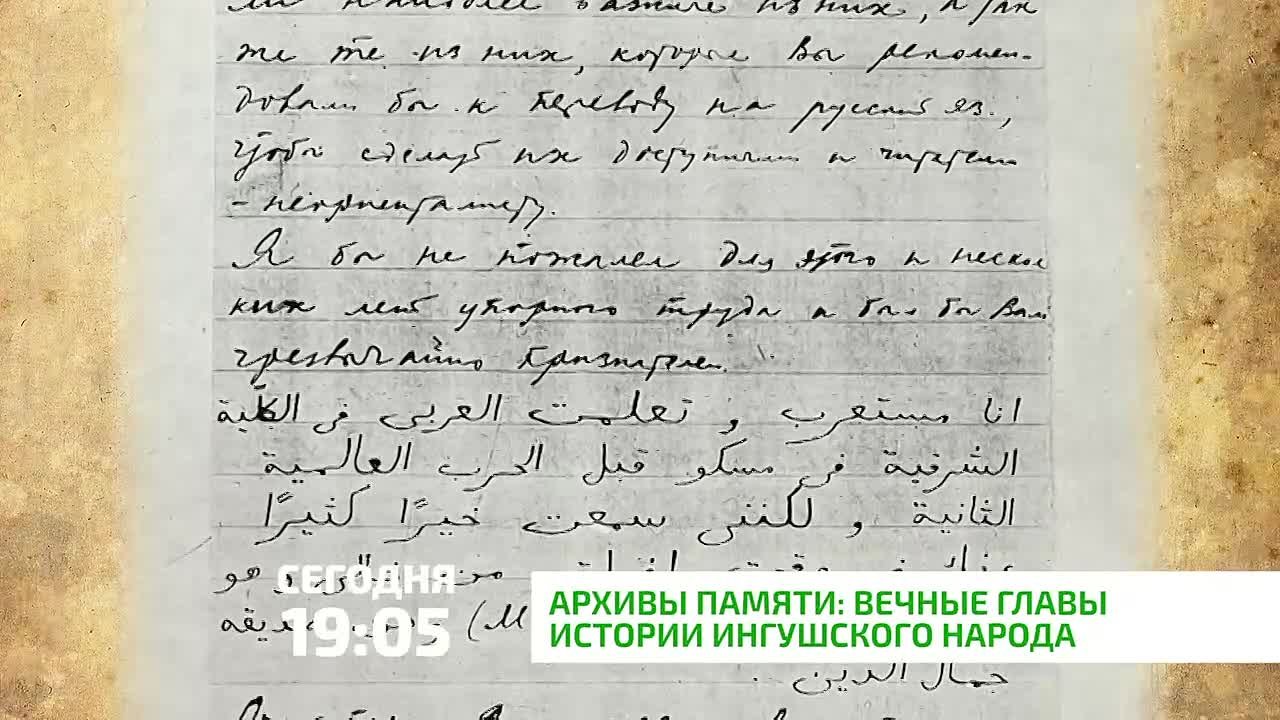 ли наиболее важные из них, а так
же те из них, которые Вы рекомен-
довали бы к переводу на русский яз.,
чтобы сделать их доступными и читателю
- неориенталисту.
Я бы не пожалел для этого и нескол
ких лет упорного труда и был бы Вам
чрезвычайно признателен.
انا مستعرب و تعلمت العربى فى الكلّية
الشرقية فى مسكو قبل الحرب العالمية
الثانية و لكننى سمعت خيرًا كثيرًا
من و هو
صديقه
جمال الدين
СЕГОДНЯ
19:05
АРХИВЫ ПАМЯТИ: ВЕЧНЫЕ ГЛАВЫ
ИСТОРИИ ИНГУШСКОГО НАРОДА